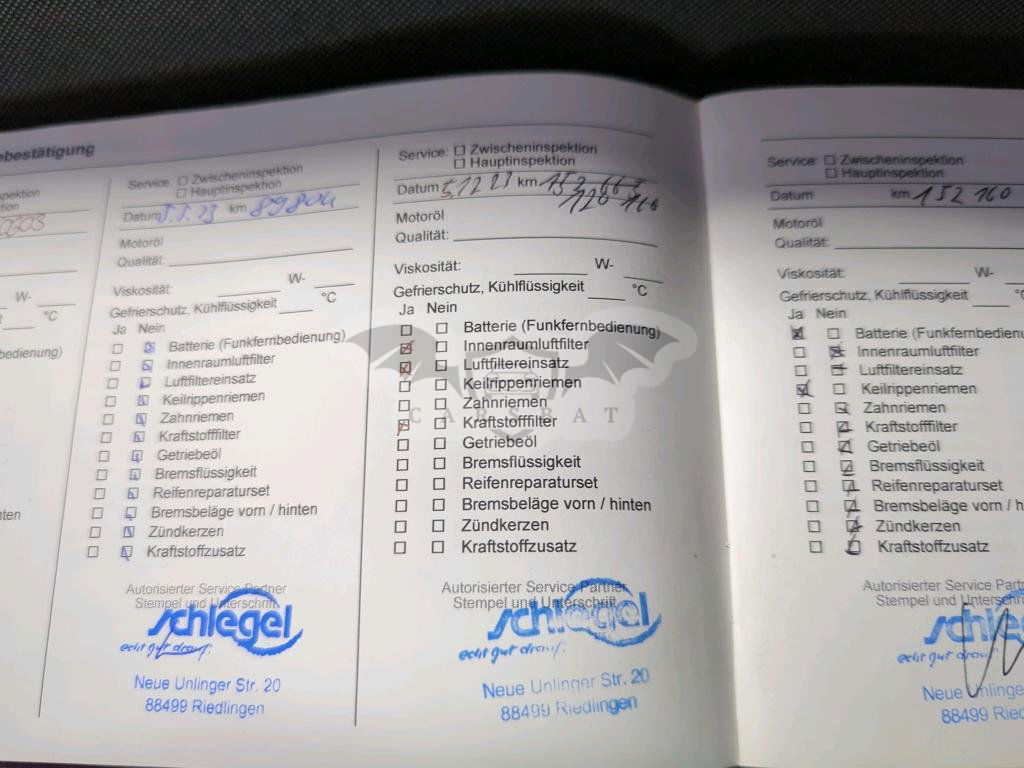 ebestätigung
pektion
tion
W-
°C
bedienung)
nten
Service: Zwischeninspektion
Hauptinspektion
Datum km 89804
Motoröl
Qualität:
Viskosität: W-
Gefrierschutz, Kühlflüssigkeit °C
Ja Nein
Batterie (Funkfernbedienung)
Innenraumluftfilter
Luftfiltereinsatz
Keilrippenriemen
Zahnriemen
Kraftstofffilter
Getriebeöl
Bremsflüssigkeit
Reifenreparaturset
Bremsbeläge vorn / hinten
Zündkerzen
Kraftstoffzusatz
Autorisierter Service Partner
Stempel und Unterschrift
schlegel
echt gut drauf.
Neue Unlinger Str. 20
88499 Riedlingen
Service: Zwischeninspektion
Hauptinspektion
Datum 5.12.23 km
Motoröl
Qualität:
Viskosität: W-
Gefrierschutz, Kühlflüssigkeit °C
Ja Nein
Batterie (Funkfernbedienung)
Innenraumluftfilter
Luftfiltereinsatz
Keilrippenriemen
Zahnriemen
CARSBAT
Kraftstofffilter
Getriebeöl
Bremsflüssigkeit
Reifenreparaturset
Bremsbeläge vorn / hinten
Zündkerzen
Kraftstoffzusatz
Autorisierter Service Partner
Stempel und Unterschrift
schlegel
echt gut drauf.
Neue Unlinger Str. 20
88499 Riedlingen
Service: Zwischeninspektion
Hauptinspektion
Datum km 152 160
Motoröl
Qualität:
Viskosität: W-
Gefrierschutz, Kühlflüssigkeit °C
Ja Nein
Batterie (Funkfernbedienu
Innenraumluftfilter
Luftfiltereinsatz
Keilrippenriemen
Zahnriemen
Kraftstofffilter
Getriebeöl
Bremsflüssigkeit
Reifenreparaturset
Bremsbeläge vorn / h
Zündkerzen
Kraftstoffzusatz
Autorisierter Service Part
Stempel und Unterschr
schleg
echt gut drauf.
Neue Unlinge
88499 Ried